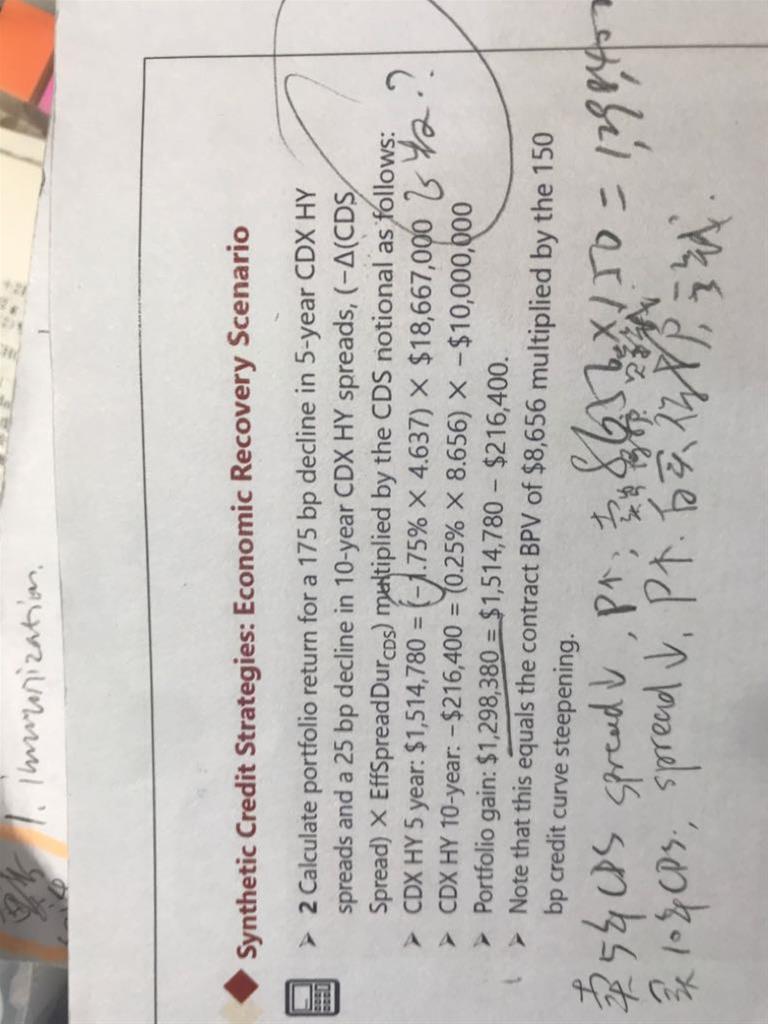 1. Immunization.
Synthetic Credit Strategies: Economic Recovery Scenario
➢ 2 Calculate portfolio return for a 175 bp decline in 5-year CDX HY
spreads and a 25 bp decline in 10-year CDX HY spreads, (−Δ(CDS
Spread) × EffSpreadDurCDS) multiplied by the CDS notional as follows:
➢ CDX HY 5 year: $1,514,780 = (−1.75% × 4.637) × $18,667,000
➢ CDX HY 10-year: −$216,400 = (0.25% × 8.656) × −$10,000,000
➢ Portfolio gain: $1,298,380 = $1,514,780 − $216,400.
➢ Note that this equals the contract BPV of $8,656 multiplied by the 150
bp credit curve steepening.
8656 × 150 =
卖5年CDS spread↓, P↑,
买10年CDS, spread↓, P↑.